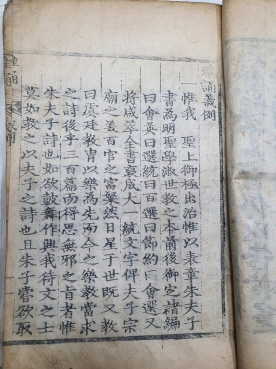 雅誦義例
一惟我 聖上御極出治惟以表章朱夫子
書為明聖學淑世教之本前後御定諸編
曰會英曰選統曰百選曰節約曰會選又
將咸萃全書裒成大一統文字俾夫子宗
廟之美百官之富粲然日星于世既又教
曰虞廷教胄以樂為先而今之樂教當求
之詩後乎三百篇而得思無邪之旨者惟
朱夫子詩也如欲鼓舞作興我待文之士
莫如教之以夫子之詩也且朱子嘗欲取